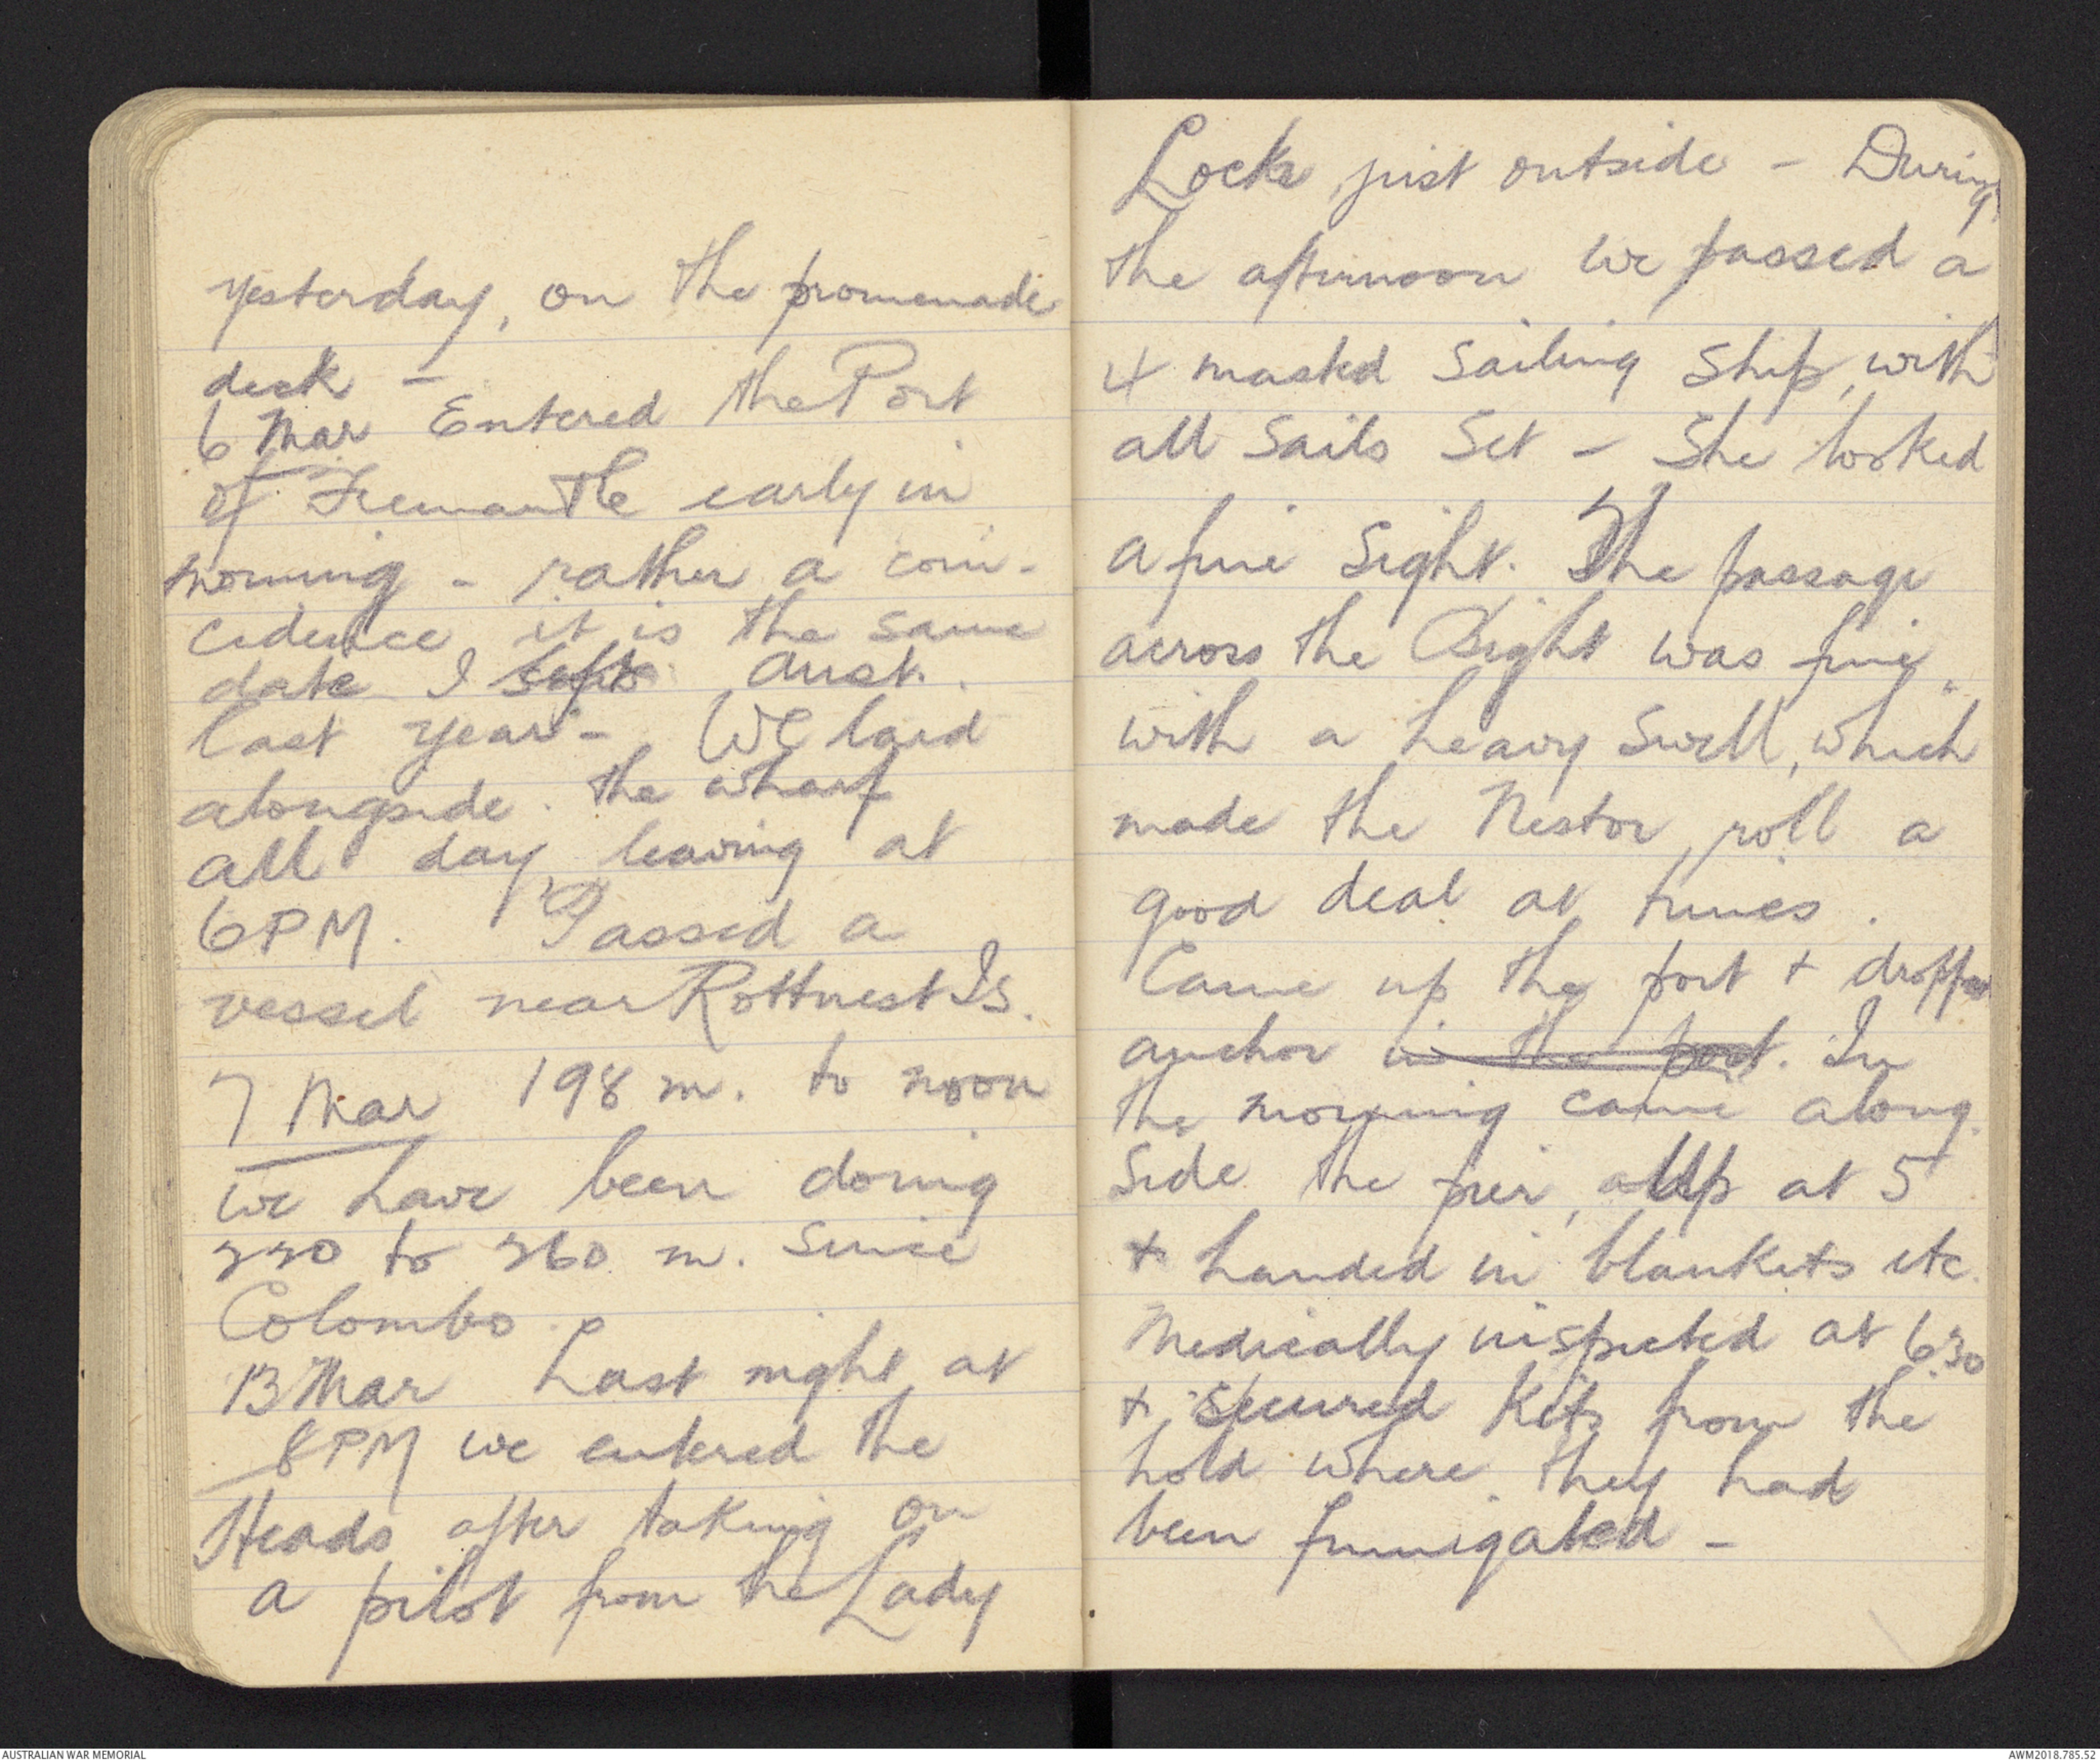 yesterday, on the promenade
deck -
6 Mar Entered the Port
of Fremantle early in
morning - rather a coin-
cidence it is the same
date I left Aust.
last year - We laid
alongside the wharf
all day, leaving at
6PM. Passed a
vessel near Rottnest Is.
7 Mar 198 m. to noon
we have been doing
330 to 360 m. since
Colombo.
13 Mar Last night at
8PM we entered the
Heads after taking on
a pilot from the Lady
Lock just outside - During
the afternoon we passed a
4 masted Sailing Ship, with
all Sails Set - She looked
a fine Sight. The passage
across the Bight was fine,
with a heavy Swell, which
made the Nestor roll a
good deal at times.
Came up the port + dropped
anchor in the port. In
the morning came along
Side the pier, all up at 5
+ handed in blankets etc.
Medically inspected at 630
+ secured Kits from the
hold where they had
been fumigated -
AUSTRALIAN WAR MEMORIAL
AWM2018.785.52